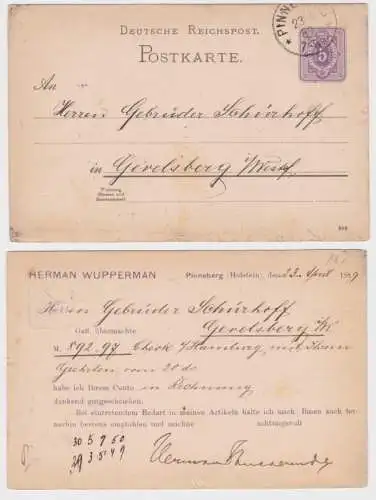 DEUTSCHE REICHSPOST.
POSTKARTE.
PINNE
23
5
An
Herren Gebrüder Schürhoff
in Gevelsberg i/Westf
Wohnung
(Strasse und
Hausnummer)
HERMAN WUPPERMAN
Pinneberg (Holstein), den 23. April 1889
Herren Gebrüder Schürhoff
Gevelsberg i/W
Gefl. übermachte
M. 892.97 Check s/Hamburg, mit Ihrem
Geehrten vom 20 ds
habe ich Ihrem Conto in Rechnung
dankend gutgeschrieben.
Bei eintretendem Bedarf in meinen Artikeln halte ich mich Ihnen auch fernerhin bestens empfohlen und zeichne
achtungsvoll
Herman Wupperman